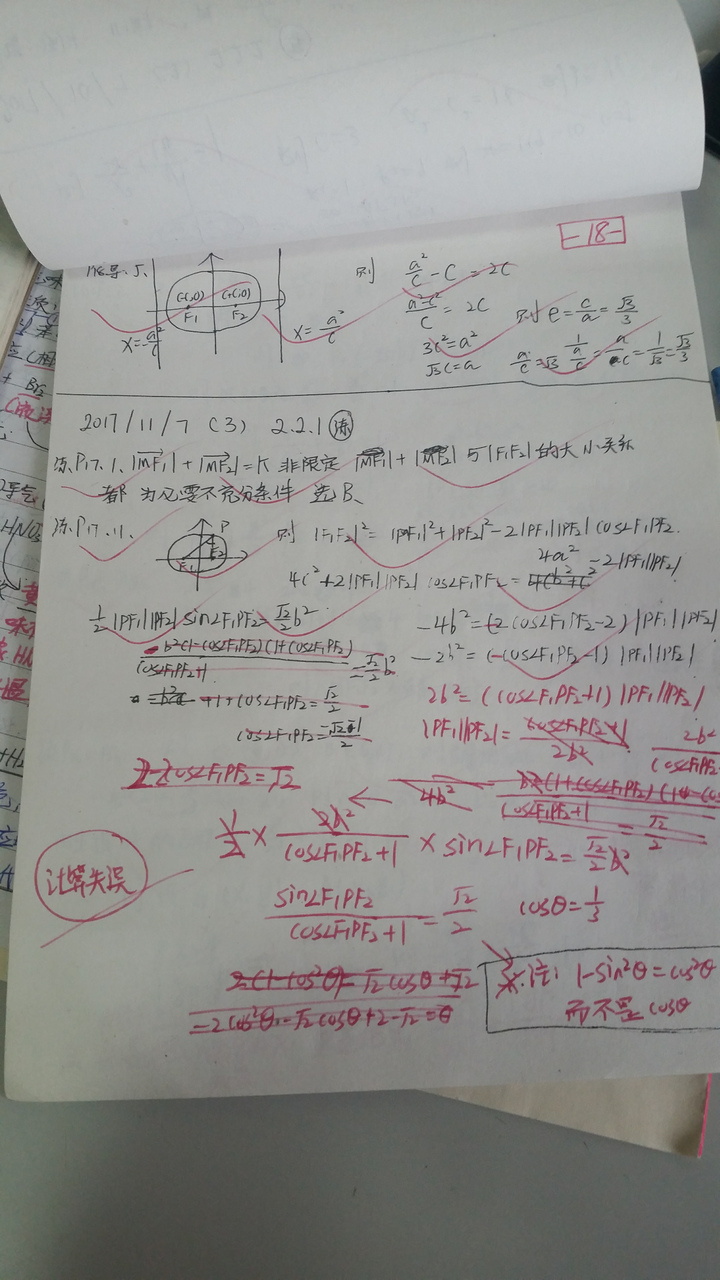 -18-
则 a²/c - c = 2c
(-c,0) (+c,0)
F₁ F₂
x=-a²/c x=a²/c
a²-c²/c = 2c 则 e=c/a=√3/3
3c²=a²
√3c=a a/c=√3 1/(a/c)=c/a=1/√3=√3/3
2017/11/7 (3) 2.2.1 练
练P17.1. |MF₁|+|MF₂|=K 非限定 |MF₁|+|MF₂| 与|F₁F₂|的大小关系
都为必要不充分条件 选B.
练P17.11. P F₁ F₂ 则 |F₁F₂|²=|PF₁|²+|PF₂|²-2|PF₁||PF₂|cos∠F₁PF₂.
4c²+2|PF₁||PF₂|cos∠F₁PF₂=4a²-2|PF₁||PF₂|
½|PF₁||PF₂|sin∠F₁PF₂=√2/2 b² -4b²=(-2cos∠F₁PF₂-2)|PF₁||PF₂|
b²(1-cos∠F₁PF₂)(1+cos∠F₁PF₂)/cos∠F₁PF₂+1=√2/2 b² -2b²=(-cos∠F₁PF₂-1)|PF₁||PF₂|
+1+cos∠F₁PF₂=√2/2 2b²=(cos∠F₁PF₂+1)|PF₁||PF₂|
cos∠F₁PF₂= |PF₁||PF₂|=cos∠F₁PF₂+1/2b² 2b²/(cos∠F₁PF₂
2-2cos∠F₁PF₂=√2
4b² cos∠F₁PF₂+1 =√2/2
½×2b²/cos∠F₁PF₂+1×sin∠F₁PF₂=√2/2 b²
计算失误
sin∠F₁PF₂/cos∠F₁PF₂+1=√2/2 cosθ=1/3
2(1-cos²θ)=√2cosθ+√2
-2cos²θ-√2cosθ+2-√2=0
※注: 1-sin²θ=cos²θ
而不是cosθ